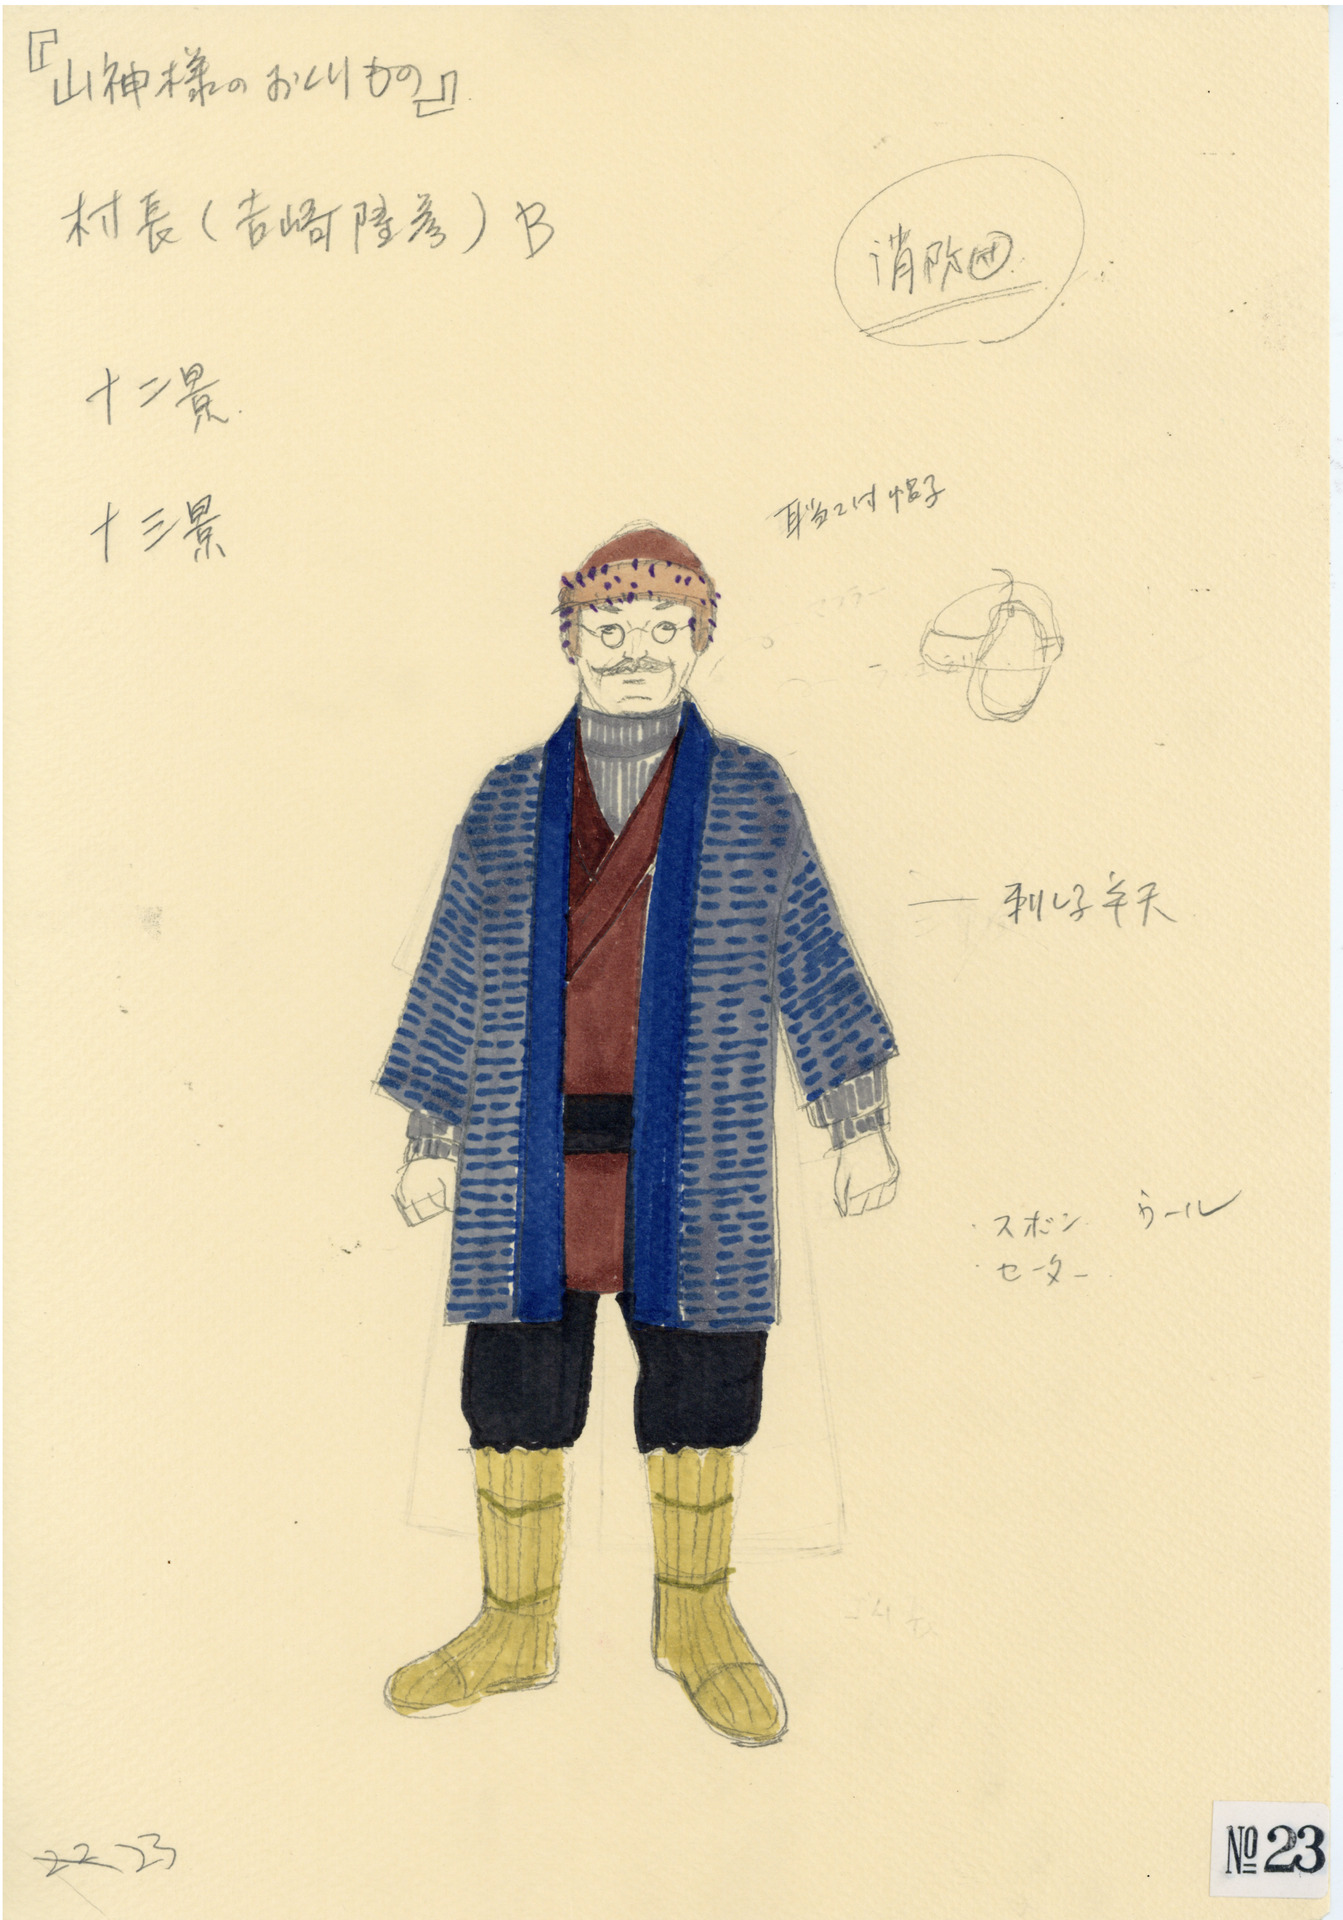 『山神様のおくりもの』
村長(吉崎陸彦)B
消防団
十二景
十三景
耳当て付帽子
マフラー
刺し子半天
・ズボン ウール
・セーター
22 23
№23